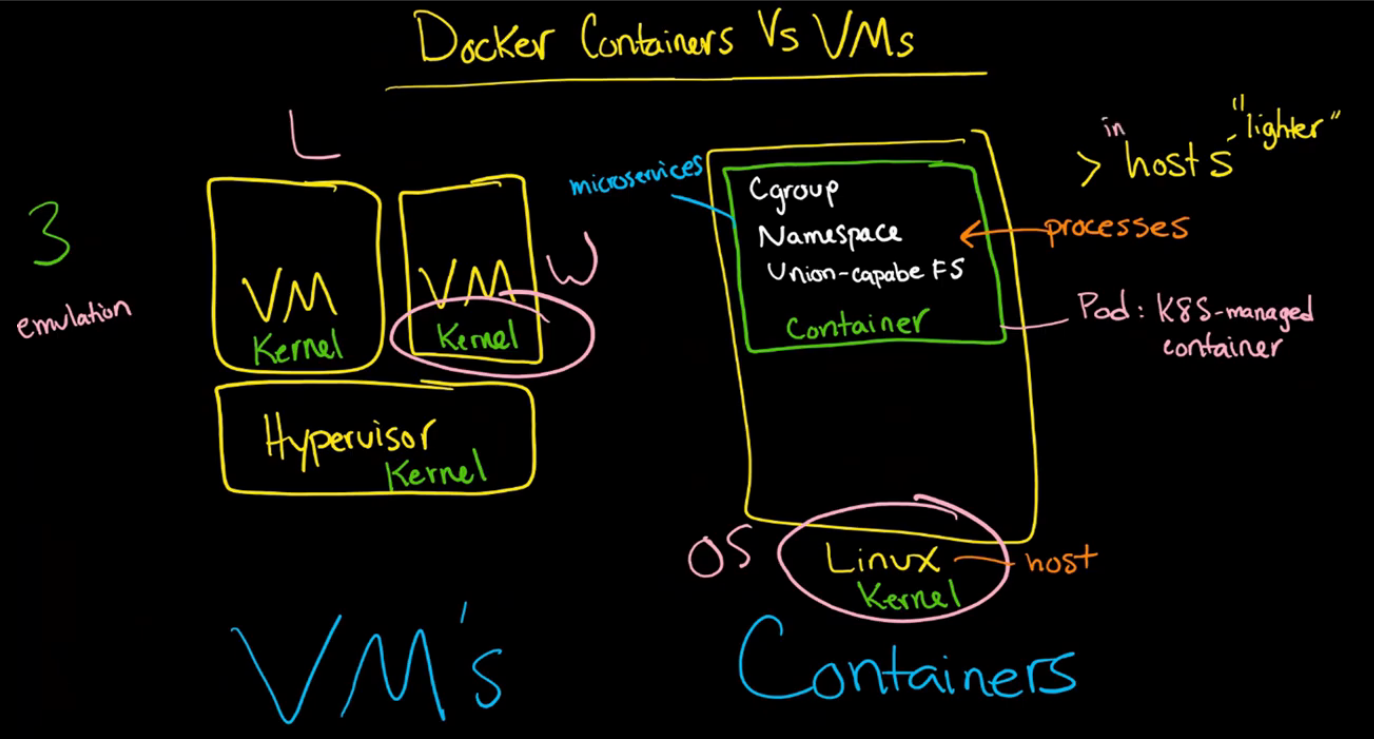 Docker Containers Vs VMs
L
3
emulation
VM
Kernel
VM
Kernel
W
Hypervisor
Kernel
VM's
microservices
Cgroup
Namespace
Union-capabe FS
Container
in
> hosts
"lighter"
processes
Pod: K8S-managed
container
OS
Linux
Kernel
host
Containers